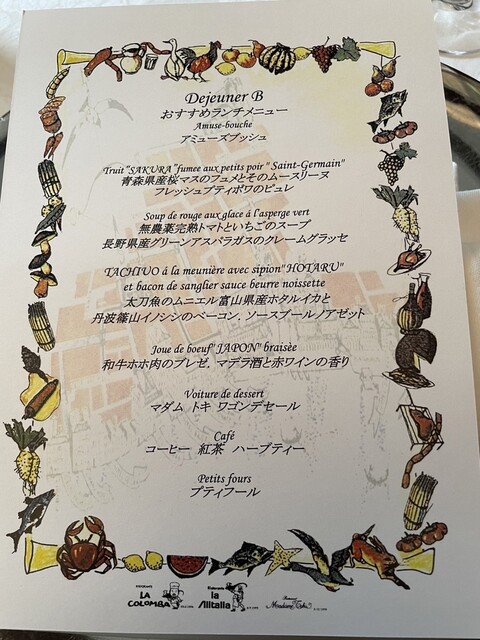 Dejeuner B
おすすめランチメニュー
Amuse-bouche
アミューズブッシュ
Truit "SAKURA" fumee aux petits poir " Saint-Germain"
青森県産桜マスのフュメとそのムースリーヌ
フレッシュプティポワのピュレ
Soup de rouge aux glace á l'asperge vert
無農薬完熟トマトといちごのスープ
長野県産グリーンアスパラガスのクレームグラッセ
TACHIUO á la meunière avec sipion"HOTARU"
et bacon de sanglier sauce beurre noissette
太刀魚のムニエル富山県産ホタルイカと
丹波篠山イノシシのベーコン、ソースブールノアゼット
Joue de boeuf"JAPON" braisèe
和牛ホホ肉のブレゼ、マデラ酒と赤ワインの香り
Voiture de dessert
マダム トキ ワゴンデセール
Café
コーヒー 紅茶 ハーブティー
Petits fours
プティフール
RISTORANTE
LA COLOMBA
Ristorante
la Alitalia
Madame Toki